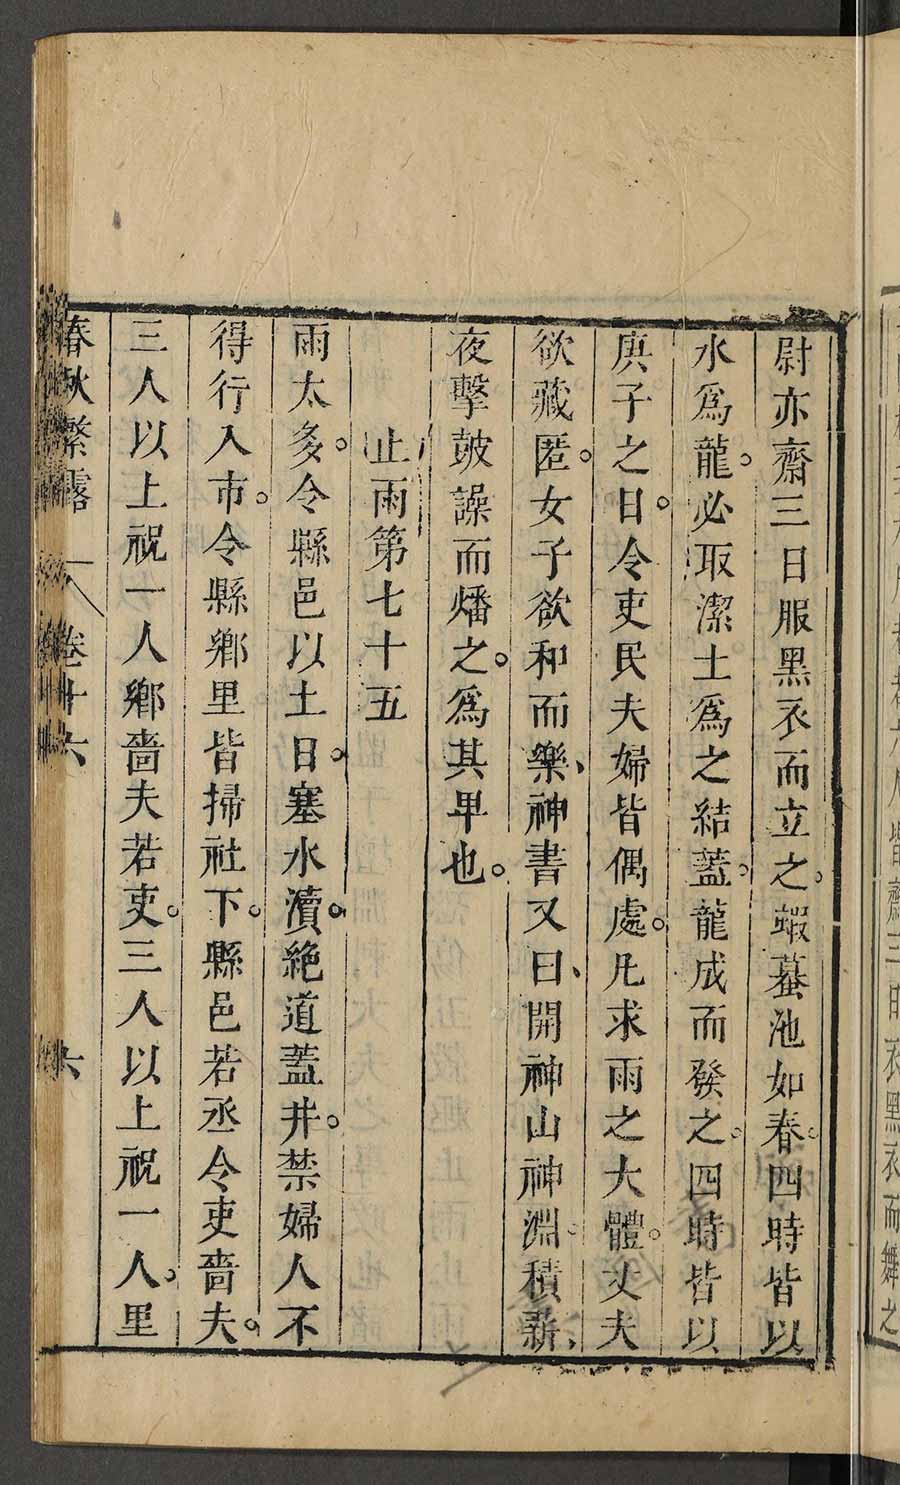 尉亦齋三日服黑衣而立之。蝦蟇池如春。四時皆以
水爲龍。必取潔土爲之結蓋。龍成而發之。四時皆以
庚子之日。令吏民夫婦皆偶處。凡求雨之大體。丈夫
欲藏匿。女子欲和而樂、神書又曰、開神山神淵。積薪、
夜擊鼓譟而燔之。爲其旱也。
止雨第七十五
雨太多。令縣邑以土日。塞水瀆。絶道蓋井。禁婦人不
得行入市。令縣鄉里皆掃社下。縣邑若丞令吏嗇夫。
三人以上祝一人鄉嗇夫若吏。三人以上祝一人。里
春秋繁露 卷十六 六
衣黑衣而舞之